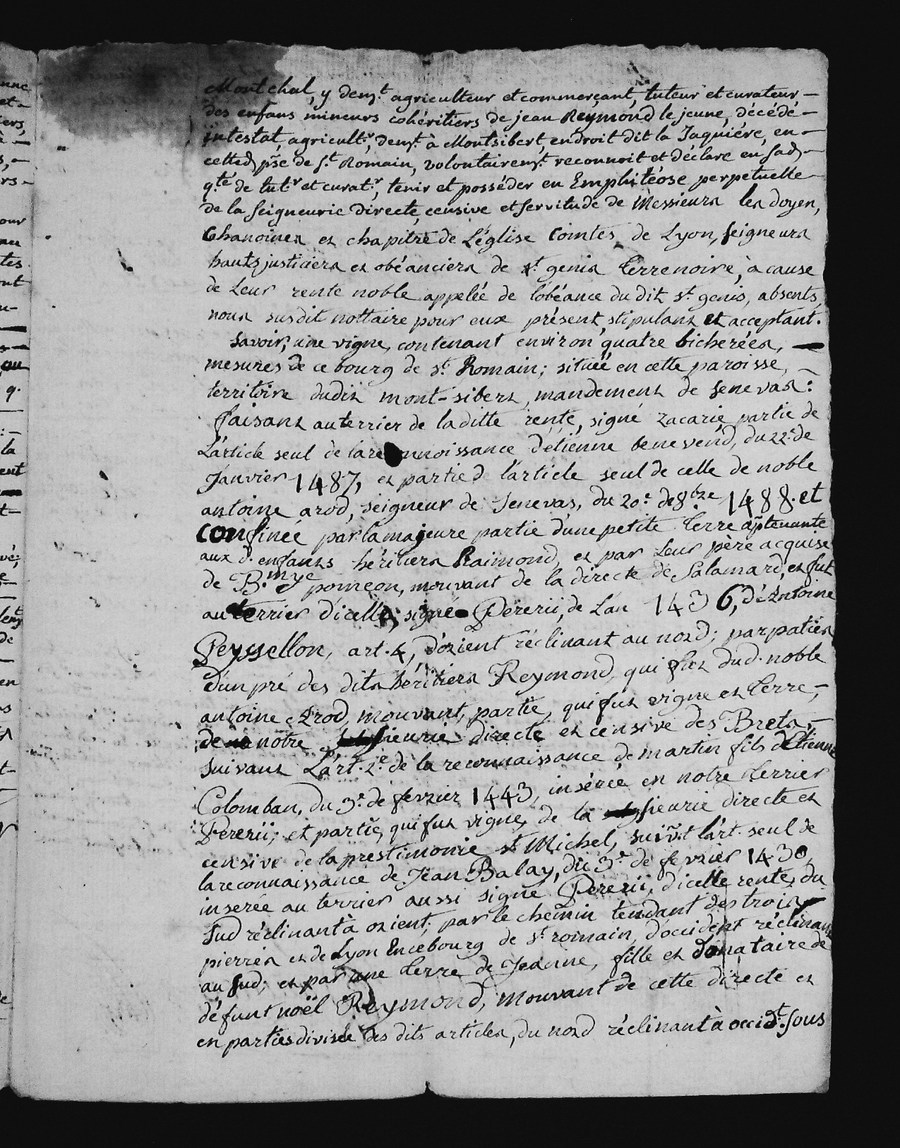 Montchal y demt. agriculteur et commerçant, tuteur et curateur
des enfans mineurs cohéritiers de jean Reymond le jeune, décédé
intestat, agricultr. demt. à Montsibert, endroit dit la Jaquiére, en
cetted. psse de st. Romain, volontairemt. reconnoit et déclare en sad.
qté de tutr. et curatr., tenir et posséder en Emphitéose perpetuelle
de la seigneurie directe, censive et servitude de Messieurs les doyen,
Chanoines et chapitre de L'église Comtes de Lyon, seigneurs
hauts justiciers et obéanciers de st. genis terrenoire, à cause
de Leur rente noble appelée de lobéance du dit st. genis, absents,
nous susdit nottaire pour eux présent, stipulant et acceptant.
Savoir, une vigne, contenant environ quatre bicherées,
mesures de ce bourg de st. Romain; située en cette paroisse,
territoire dudit mont-sibert, mandement de senevas:
faisant au terrier de la ditte rente, signé zacarie, partie de
L'article seul de la reconnoissance d'étienne benevend, du 22e. de
Janvier 1487, et partie de l'article seul de celle de noble
antoine arod, seigneur de Senevas, du 20e. de 8bre 1488. et
confinée par la majeure partie d'une petite terre aptenante
aux d. enfants héritiers Raimond, et par Leur père acquise
de Bmye poinçon, mouvant de la directe de Salamard, et fut
au terrier d'icelle, signé Pererii, de L'an 1436, d'Antoine
Peyssellon, art. 4, d'orient réclinant au nord; par paties
d'un pré des dits héritiers Reymond, qui fut dud. noble
antoine Arod, mouvant, partie, qui fut vigne et terre,
de nôtre directe et censive des Brets,
suivant L'art. 2e. de la reconnaissance de martin fils d'Etienne
Colomban, du 3e. de fevrier 1443, insérée en notre terrier
Pererii; et partie, qui fut vigne, de la directe et
censive de la prestimonie st. Michel, suivt. l'art. seul de
la reconnaissance de Jean Balay, du 3e. de fevrier 1430,
inserée au terrier aussi signé Pererii, d'icelle rente, du
sud réclinant à orient; par le chemin tendant des trois
pierres et de Lyon En ce bourg de st. romain, d'occident réclinant
au sud; et par une terre de Jeanne, fille et donataire de
défunt noël Reymond, mouvant de cette directe et
en parties divisée des dits articles, du nord réclinant à occidt. sous